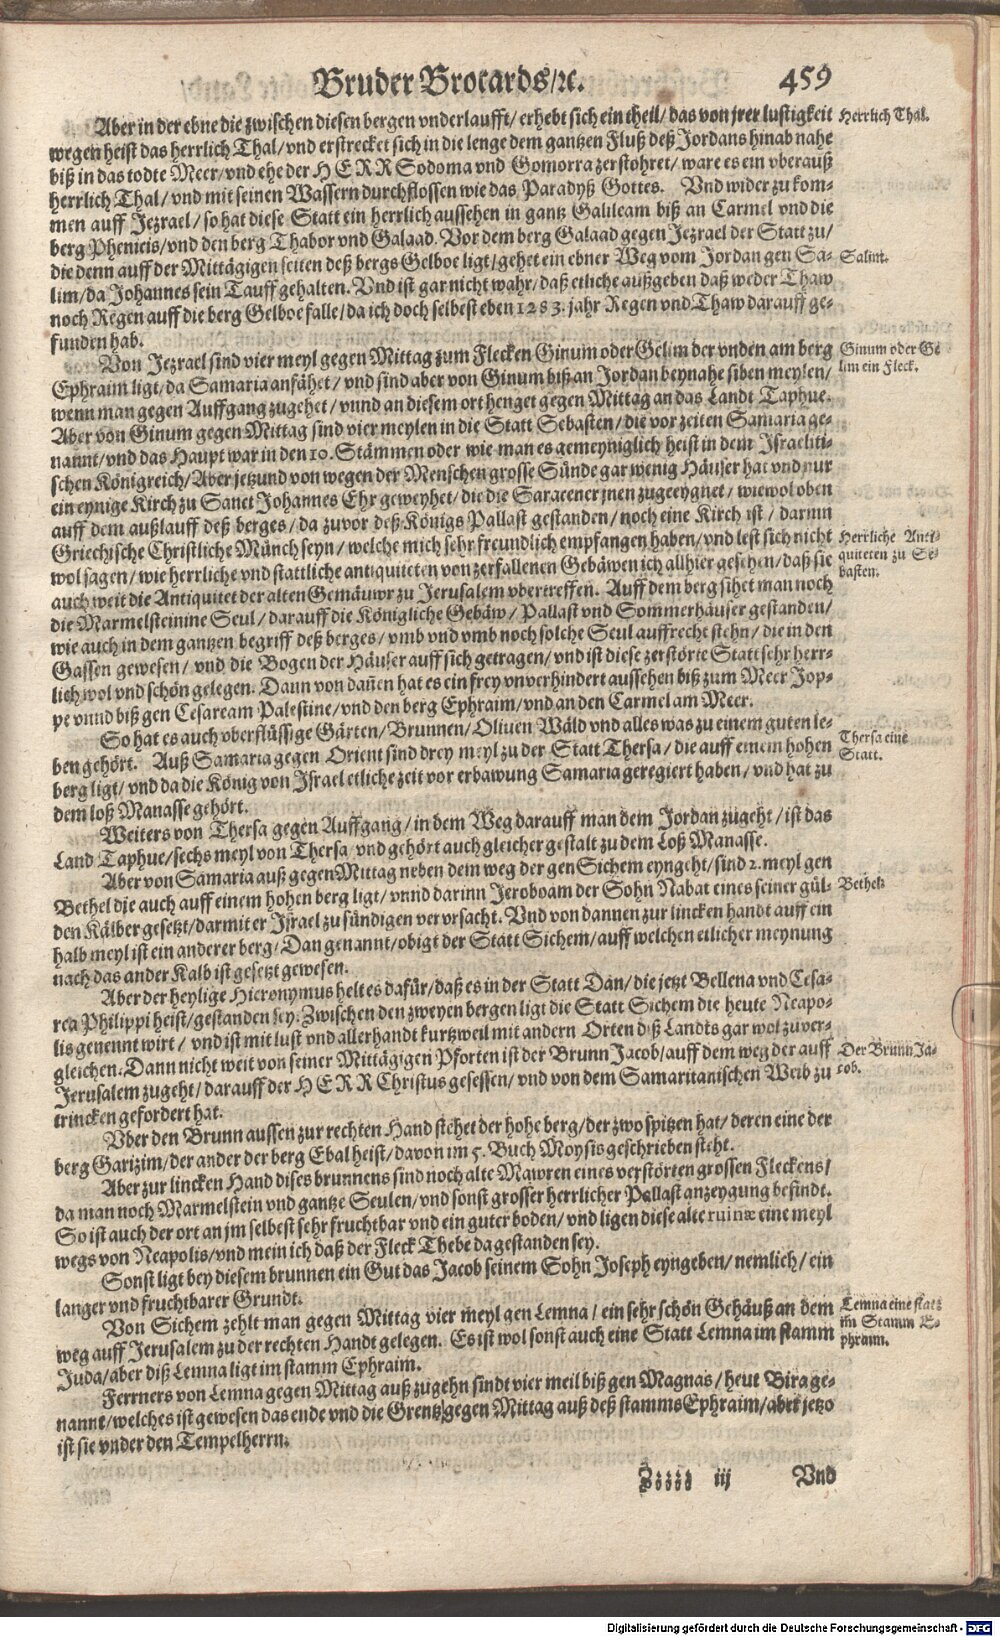 Bruder Brocards/ꝛc. 459
Aber in der ebne die zwischen diesen bergen vnderlaufft/ erhebt sich ein theil/ das von jrer lustigkeit
wegen heist das herrlich Thal/ vnd erstrecket sich in die lenge dem gantzen Fluß deß Jordans hinab nahe
biß in das todte Meer/ vnd ehe der HERR Sodoma vnd Gomorra zerstohret/ ware es ein vberauß
herrlich Thal/ vnd mit seinen Wassern durchflossen wie das Paradyß Gottes. Vnd wider zu kom-
men auff Jezrael/ so hat diese Statt ein herrlich aussehen in gantz Galileam biß an Carmel vnd die
berg Phenicis/ vnd den berg Thabor vnd Galaad. Vor dem berg Galaad gegen Jezrael der Statt zu/
die denn auff der Mittägigen seiten deß bergs Gelboe ligt/ gehet ein ebner Weg vom Jordan gen Sa-
lim/ da Johannes sein Tauff gehalten. Vnd ist gar nicht wahr/ daß etliche außgeben daß weder Thaw
noch Regen auff die berg Gelboe falle/ da ich doch selbest eben 1283. jahr Regen vnd Thaw darauff ge-
funden hab.
Von Jezrael sind vier meyl gegen Mittag zum Flecken Ginum oder Gelim der vnden am berg
Ephraim ligt/ da Samaria anfähet/ vnd sind aber von Ginum biß an Jordan beynahe siben meylen/
wenn man gegen Auffgang zugehet/ vnnd an diesem ort henget gegen Mittag an das Landt Taphue.
Aber von Ginum gegen Mittag sind vier meylen in die Statt Sebasten/ die vor zeiten Samaria ge-
nannt/ vnd das Haupt war in den 10. Stämmen oder wie man es gemeyniglich heist in dem Israeliti-
schen Königreich/ Aber jetzund von wegen der Menschen grosse Sünde gar wenig Häuser hat vnd nur
ein eynige Kirch zu Sanct Johannes Ehr geweyhet/ die die Saracener jnen zugeeygnet/ wiewol oben
auff dem außlauff deß berges/ da zuvor deß Königs Pallast gestanden/ noch eine Kirch ist/ darinn
Griechische Christliche Münch seyn/ welche mich sehr freundlich empfangen haben/ vnd lest sich nicht
wol sagen/ wie herrliche vnd stattliche antiquiteten von zerfallenen Gebäwen ich allhier gesehen/ daß sie
auch weit die Antiquitet der alten Gemäuwr zu Jerusalem vbertreffen. Auff dem berg sihet man noch
die Marmelsteinine Seul/ darauff die Königliche Gebäw/ Pallast vnd Sommerhäuser gestanden/
wie auch in dem gantzen begriff deß berges/ vmb vnd vmb noch solche Seul auffrecht stehn/ die in den
Gassen gewesen/ vnd die Bogen der Häuser auff sich getragen/ vnd ist diese zerstörte Statt sehr herr-
lich wol vnd schön gelegen. Dann von dañen hat es ein frey vnverhindert aussehen biß zum Meer Jop-
pe vnnd biß gen Cesaream Palestine/ vnd den berg Ephraim/ vnd an den Carmel am Meer.
So hat es auch vberflüssige Gärten/ Brunnen/ Oliuen Wäld vnd alles was zu einem guten le-
ben gehört. Auß Samaria gegen Orient sind drey meyl zu der Statt Thersa/ die auff einem hohen
berg ligt/ vnd da die König von Israel etliche zeit vor erbawung Samaria geregiert haben/ vnd hat zu
dem loß Manasse gehört.
Weiters von Thersa gegen Auffgang/ in dem Weg darauff man dem Jordan zugeht/ ist das
Land Taphue/ sechs meyl von Thersa vnd gehört auch gleicher gestalt zu dem Loß Manasse.
Aber von Samaria auß gegen Mittag neben dem weg der gen Sichem eyngeht/ sind 2. meyl gen
Bethel die auch auff einem hohen berg ligt/ vnnd darinn Jeroboam der Sohn Nabat eines seiner gül-
den Kälber gesetzt/ darmit er Israel zu sündigen verursacht. Vnd von dannen zur lincken handt auff ein
halb meyl ist ein anderer berg/ Dan genannt/ obigt der Statt Sichem/ auff welchen etlicher meynung
nach das ander Kalb ist gesetzt gewesen.
Aber der heylige Hieronymus helt es dafür/ daß es in der Statt Dan/ die jetzt Bellena vnd Cesa-
rea Philippi heist/ gestanden sey. Zwischen den zweyen bergen ligt die Statt Sichem die heute Neapo-
lis genennt wirt/ vnd ist mit lust vnd allerhandt kurtzweil mit andern Orten diß Landts gar wol zuver-
gleichen. Dann nicht weit von seiner Mittägigen Pforten ist der Brunn Jacob/ auff dem weg der auff
Jerusalem zugeht/ darauff der HERR Christus gesessen/ vnd von dem Samaritanischen Weib zu
trincken gefordert hat.
Vber den Brunn aussen zur rechten Hand stehet der hohe berg/ der zwo spitzen hat/ deren eine der
berg Garizim/ der ander der berg Ebal heist/ davon im 5. Buch Moysis geschrieben steht.
Aber zur lincken Hand dises brunnens sind noch alte Mawren eines verstörten grossen Fleckens/
da man noch Marmelstein vnd gantze Seulen/ vnd sonst grosser herrlicher Pallast anzeygung befindt.
So ist auch der ort an jm selbest sehr fruchtbar vnd ein guter boden/ vnd ligen diese alte ruinæ eine meyl
wegs von Neapolis/ vnd mein ich daß der Fleck Thebe da gestanden sey.
Sonst ligt bey diesem brunnen ein Gut das Jacob seinem Sohn Joseph eyngeben/ nemlich/ ein
langer vnd fruchtbarer Grundt.
Von Sichem zehlt man gegen Mittag vier meyl gen Lemna/ ein sehr schön Gehäuß an dem
weg auff Jerusalem zu der rechten Handt gelegen. Es ist wol sonst auch eine Statt Lemna im stamm
Juda/ aber diß Lemna ligt im stamm Ephraim.
Ferrners von Lemna gegen Mittag auß zugehn sindt vier meil biß gen Magnas/ heut Bira ge-
nannt/ welches ist gewesen das ende vnd die Grentz gegen Mittag auß deß stamms Ephraim/ aber jetzo
ist sie vnder den Tempelherrn.
Zzzzz iij Vnd
Herrlich Thal.
Salim.
Ginum oder Ge
lim ein Fleck.
Herrliche Anti-
quiteten zu Se-
basten.
Thersa eine
Statt.
Bethel.
Der Brunn Ja-
cob.
Lemna eine statt
im Stamm E-
phraim.
Digitalisierung gefördert durch die Deutsche Forschungsgemeinschaft - DFG